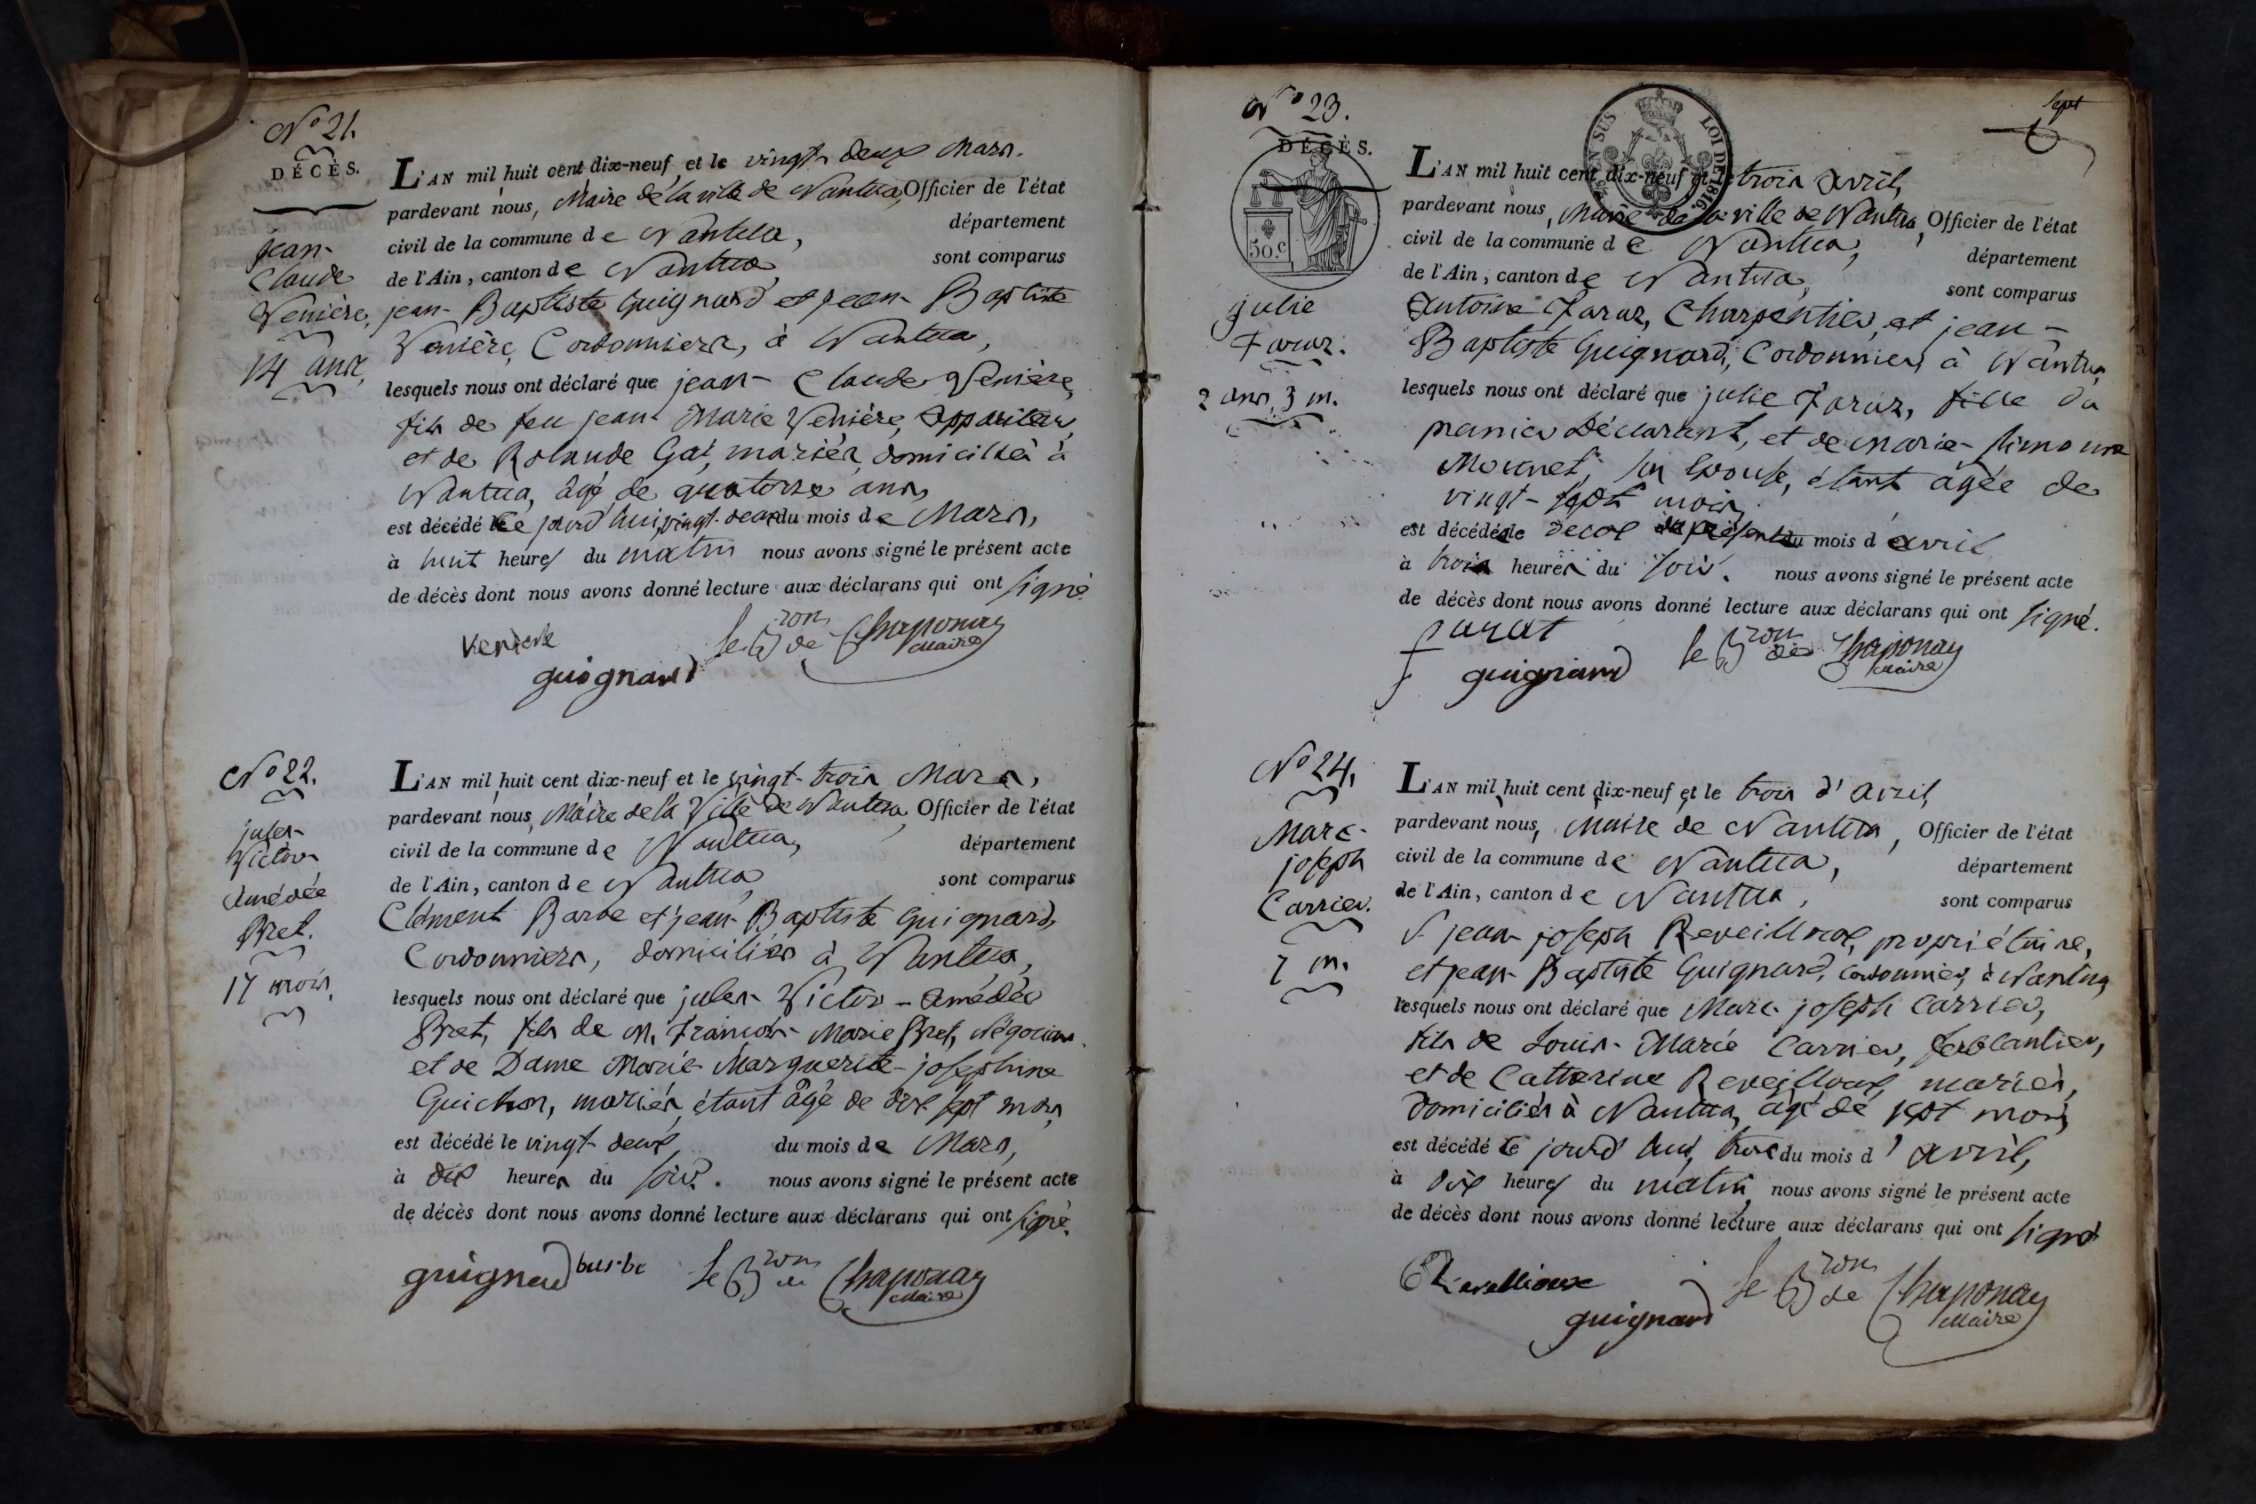 N° 21.
DÉCÈS.
Jean-
Claude
Venière,
14 ans,
L'AN mil huit cent dix-neuf et le vingt deux Mars.
pardevant nous, Maire de la ville de Nantua, Officier de l'état
civil de la commune de Nantua, département
de l'Ain, canton de Nantua sont comparus
jean-Baptiste Guignard et jean-Baptiste
Venière, Cordonniers, à Nantua,
lesquels nous ont déclaré que jean-Claude Venière,
fils de feu jean-Marie Venière, appariteur,
et de Rolande Gai, mariés, domiciliés à
Nantua, âgé de quatorze ans,
est décédé ce jourd'hui, vingt-deux du mois de Mars,
à huit heures du matin nous avons signé le présent acte
de décès dont nous avons donné lecture aux déclarans qui ont signé.
Veniere le Bron de Chaponay
Maire
guignard
N° 22.
jules-
Victor-
Amédée
Bret.
17 mois.
L'AN mil huit cent dix-neuf et le vingt-trois Mars,
pardevant nous, Maire de la Ville de Nantua, Officier de l'état
civil de la commune de Nantua, département
de l'Ain, canton de Nantua sont comparus
Clément Barbe et jean-Baptiste Guignard,
Cordonniers, domiciliés à Nantua,
lesquels nous ont déclaré que jules-Victor-Amédée
Bret, fils de M. François-Marie Bret, Négociant
et de Dame Marie-Marguerite-josephine
Guichon, mariés, étant âgé de dix sept mois,
est décédé le vingt-deux du mois de Mars,
à dix heures du soir. nous avons signé le présent acte
de décès dont nous avons donné lecture aux déclarans qui ont signé.
guignard barbe le Bron de Chaponay
Maire
Sept
N° 23.
DÉCÈS.
50 c
SUS LOI DE 1816.
julie
Faraz.
2 ans, 3 m.
L'AN mil huit cent dix-neuf et le trois avril,
pardevant nous, Maire de la ville de Nantua, Officier de l'état
civil de la commune de Nantua, département
de l'Ain, canton de Nantua, sont comparus
Antoine Faraz, Charpentier, et jean-
Baptiste Guignard, Cordonnier, à Nantua,
lesquels nous ont déclaré que julie Faraz, fille du
premier déclarant, et de Marie-
son Epouse, étant âgée de
vingt-sept mois,
est décédée le deux du mois d'avril
à trois heures du soir. nous avons signé le présent acte
de décès dont nous avons donné lecture aux déclarans qui ont signé.
farat le Bron de Chaponay
Maire
guignard
N° 24.
Marc-
joseph
Carrier.
7 m.
L'AN mil huit cent dix-neuf et le trois d'avril,
pardevant nous, Maire de Nantua, Officier de l'état
civil de la commune de Nantua, département
de l'Ain, canton de Nantua, sont comparus
S. jean-joseph Reveilloux, propriétaire,
et jean-Baptiste Guignard, cordonnier, à Nantua,
lesquels nous ont déclaré que Marc-joseph Carrier,
fils de Louis-Marie Carrier, ferblantier,
et de Catherine Reveilloux, mariés,
domiciliés à Nantua, âgé de sept mois,
est décédé ce jourd'hui, trois du mois d'avril,
à dix heures du matin, nous avons signé le présent acte
de décès dont nous avons donné lecture aux déclarans qui ont signé
le Bron de Chaponay
Maire
guignard